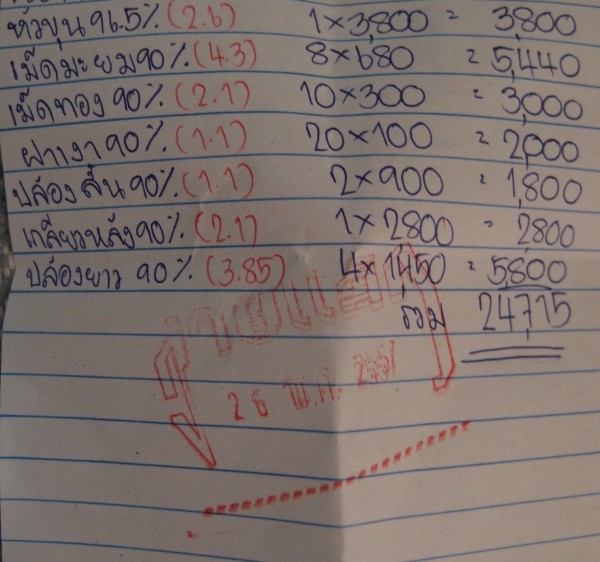 หัวขุน 96.5% (2.6) 1×3,800 = 3,800
เม็ดมะยม 90% (4.3) 8×680 = 5,440
เม็ดทอง 90% (2.1) 10×300 = 3,000
ฝาเงา 90% (1.1) 20×100 = 2,000
ปล้องสั้น 90% (1.1) 2×900 = 1,800
เกลียวหลัง 90% (2.1) 1×2800 = 2800
ปล้องยาว 90% (3.85) 4×1,450 = 5,800
รวม 24,715
จ่ายแล้ว
28 พ.ค. 2557